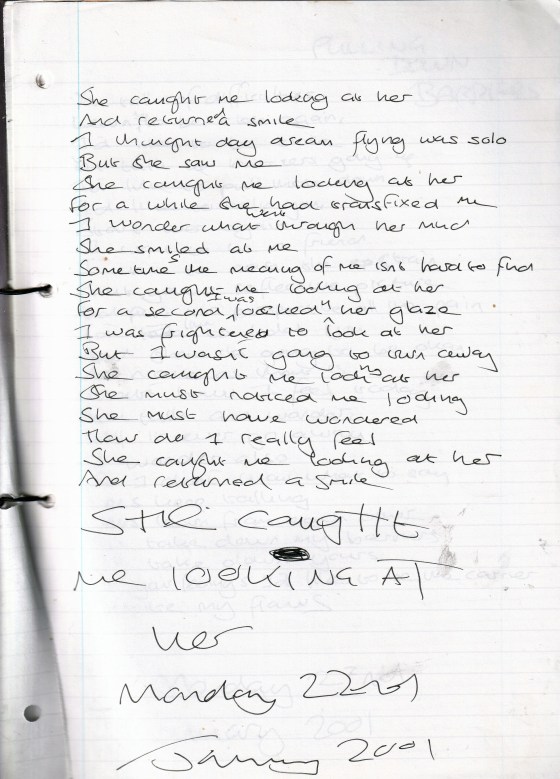 She caught me looking at her
And returned a smile
I thought day dream flying was solo
But she saw me
She caught me looking at her
For a while she had transfixed me
I wonder what went through her mind
She smiled at me
Sometimes the meaning of me isnt hard to find
She caught me looking at her
For a second I was locked in her glaze
I was frightened to look at her
But I wasn't going to turn away
She caught me looking at her
She must noticed me looking
She must have wondered
How do I really feel
She caught me looking at her
And returned a smile
SHE CaugHt
me LOOKING AT
her
Monday 22nd
January 2001